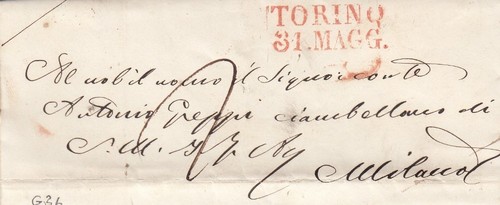 TORINO
31. MAGG.
Al nobil uomo il Signor conte
Antonio Greppi ciambellano di
S. M. I. R. A.
Milano
G36